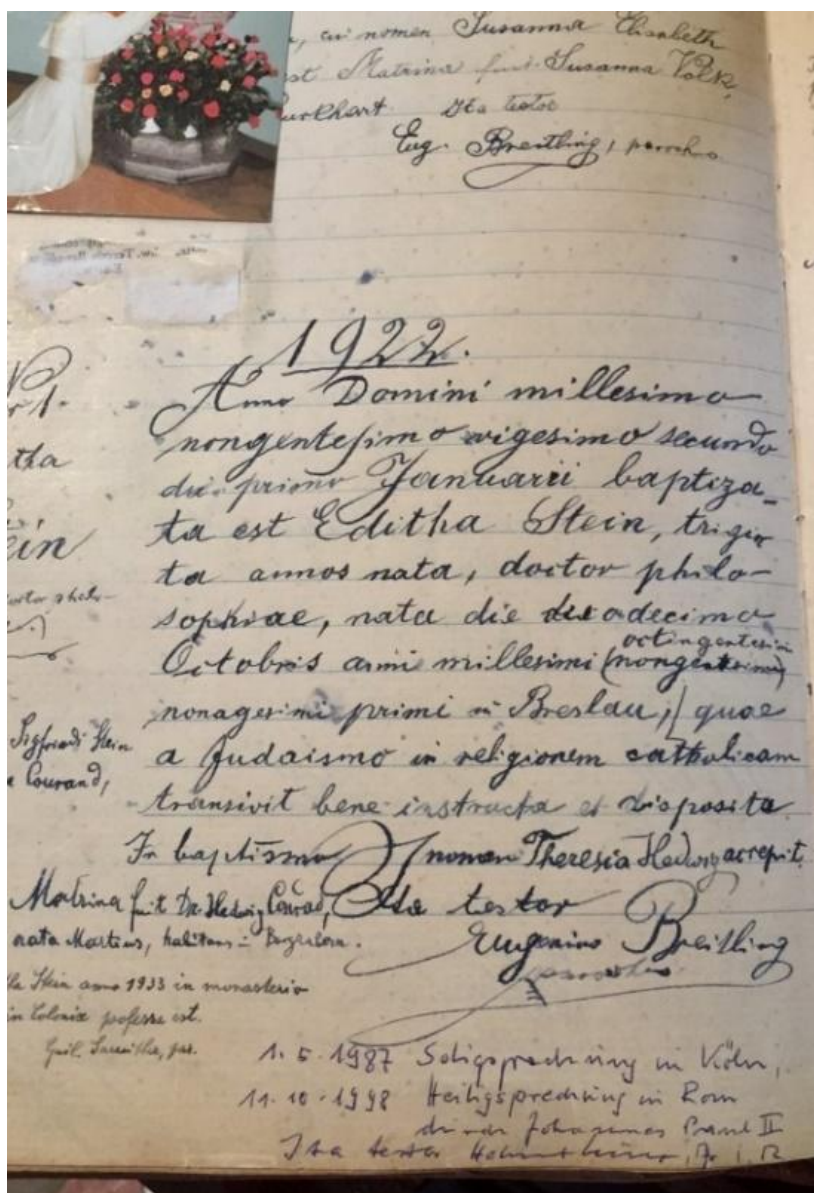 cui nomen Susanna Elisabeth
est Matrina fuit Susanna Volk,
Burkhart Ita testor
Eug. Breitling, parochus
1922.
Nr 1.
Anno Domini millesimo
nongentesimo vigesimo secundo
die primo Januarii baptiza-
ta est Editha Stein, trigin
ta annos nata, doctor philo-
sophiae, nata die duodecimo
Octobris anni millesimi (nongentesimi)
octingentesimi
nonagesimi primi in Breslau, quae
a Judaismo in religionem catholicam
transivit bene instructa et disposita.
In baptismo nomen Theresia Hedwig accepit.
Ita testor
Eugenius Breitling
parochus
tha
ein
Sigfriedi Stein
Courand,
Matrina fuit Dr. Hedwig Conrad,
nata Martius, habitans in Bergzabern.
Stein anno 1933 in monasterio
in Colonia professa est.
1.5.1987 Seligsprechung in Köln,
11.10.1998 Heiligsprechung in Rom
durch Johannes Paul II
Ita testor